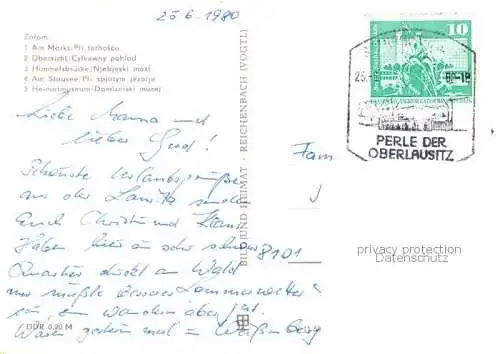 25 6. 1980
Zatom:
1 Am Markt/Při torhošću
2 Übersicht/Cyłkowny pohlad
3 Himmelsbrücke/Njebjeski móst
4 Am Stausee/Při spjatym jězorje
5 Heimatmuseum/Domizniski muzej
Liebe Mama und
lieber Gerd!
Schönste Urlaubsgrüße
aus der Lausitz sendet
Euch Christine und Klaus
Haben hier ein sehr schönes
Quartier direkt am Wald
nur müßte besseres Sommerwetter
ein wandern aber gut.
Waren gestern mal in Weißenberg
DDR 0,20 M
BILD UND HEIMAT · REICHENBACH (VOGTL)
10
25.
80-18
PERLE DER
OBERLAUSITZ
Fam
8101
privacy protection
Datenschutz